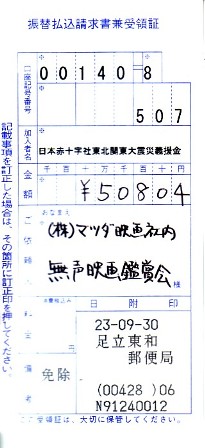 振替払込請求書兼受領証
口座記号番号
00140-8
507
加入者名
日本赤十字社東北関東大震災義援金
金額
千百十万千百十円
¥50804
ご依頼人
おなまえ
(株)マツダ映画社内
無声映画鑑賞会
様
料金
(消費税込み)
円
日附印
23-09-30
足立東和
郵便局
備考
免除
(00428)06
N91240012
この受領証は、大切に保管してください。
記載事項を訂正した場合は、その箇所に訂正印を押してください。